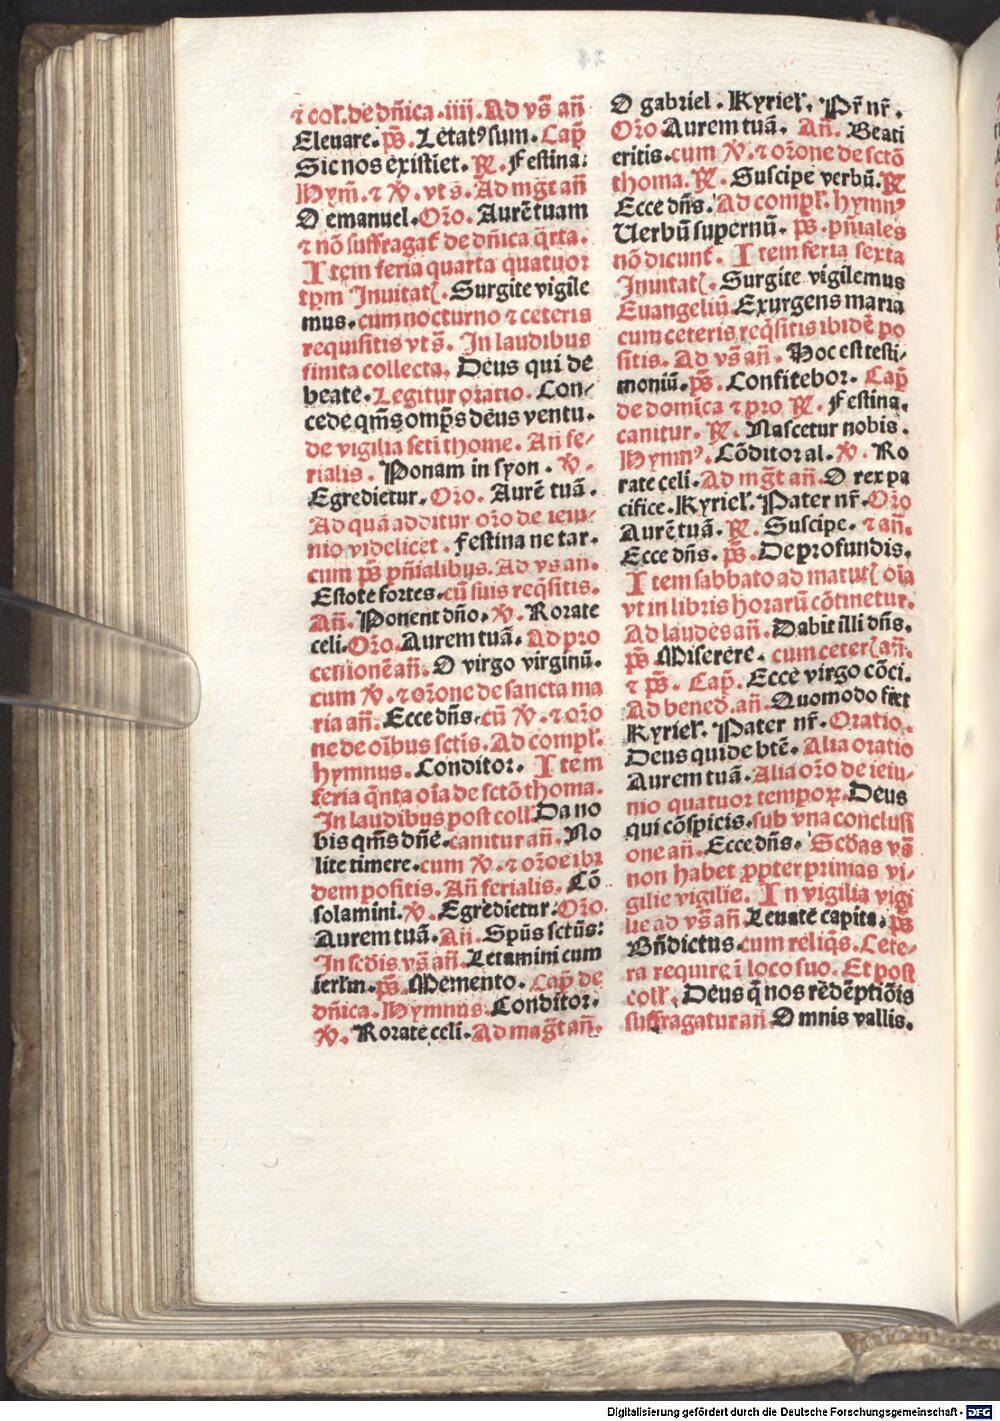 ⁊ col̄. de dn̄ica .iiij. Ad vs̄ an̄
Eleuare. ps̄. Letatꝰ sum. Cap̄
Sic nos existiet. ℞. Festina.
Hym̄. ⁊ ℣. vt s̄. Ad mḡt an̄
O emanuel. Or̄o. Aurē tuam
⁊ nō suffragat̄ de dn̄ica q̄rta.
Item feria quarta quatuor
tp̄m Inuitat̄. Surgite vigile
mus. cum nocturno ⁊ ceteris
requisitis vt s̄. In laudibus
finita collecta. Deus qui de
beate. Legitur oratio. Con-
cede qm̄s omp̄s deus ventu.
de vigilia scti thome. An̄ fe-
rialis. Ponam in syon. ℣.
Egredietur. Or̄o. Aurē tuā.
Ad quā additur or̄o de ieiu-
nio videlicet. Festina ne tar.
cum ps̄ pn̄ialibus. Ad vs an̄.
Estote fortes. cū suis reqs̄itis.
An̄. Ponent dn̄o. ℣. Rorate
celi. Or̄o. Aurem tuā. Ad pro
cessionē an̄. O virgo virginū.
cum ℣. ⁊ or̄one de sancta ma
ria an̄. Ecce dn̄s. cū ℣. ⁊ or̄o
ne de oībus sctīs. Ad compl̄.
hymnus. Conditor. Item
feria q̄nta oīa de sctō thoma.
In laudibus post coll̄. Da no
bis qm̄s dn̄e. canitur an̄. No
lite timere. cum ℣. ⁊ or̄oe ibi
dem positis. An̄ ferialis. Cō
solamini. ℣. Egredietur. Or̄o.
Aurem tuā. An̄. Spūs sctūs:
In scd̄is vs̄ an̄. Letamini cum
ierl̄m. ps̄. Memento. Cap̄ de
dn̄ica. Hymnus. Conditor.
℣. Rorate celi. Ad maḡt an̄.
O gabriel. Kyriel̄. Pr̄ nr̄.
Or̄o. Aurem tuā. An̄. Beati
eritis. cum ℣. ⁊ or̄one de sctō
thoma. ℞. Suscipe verbū. ℞
Ecce dn̄s. Ad compl̄. hymnꝰ
Uerbū supernū. ps̄. pn̄iales
nō dicunt̄. Item feria sexta
Inuitat̄. Surgite vigilemus
Euangeliū. Exurgens maria
cum ceteris reqs̄itis ibidē po
sitis. Ad vs̄ an̄. Hoc est testi-
moniū. ps̄. Confitebor. Cap̄
de domīca ⁊ pro ℞. Festina.
canitur. ℞. Nascetur nobis.
Hymnꝰ. Cōditor al. ℣. Ro
rate celi. Ad mḡt an̄. O rex pa
cifice. Kyriel̄. Pater nr̄. Or̄o
Aurē tuā. ℞. Suscipe. ⁊ an̄.
Ecce dn̄s. ps̄. De profundis.
Item sabbato ad matut̄ oīa
vt in libris horarū cōtinetur.
Ad laudes an̄. Dabit illi dn̄s.
ps̄ Miserere. cum ceter̄ an̄.
⁊ ps̄. Cap̄. Ecce virgo cōci.
Ad bened. an̄. Quomodo fiet
Kyriel̄. Pater nr̄. Oratio.
Deus qui de btē. Alia oratio
Aurem tuā. Alia or̄o de ieiu-
nio quatuor temporꝝ. Deus
qui cōspicis. sub vna conclusi
one an̄. Ecce dn̄s. Scd̄as vs̄
non habet ꝓpter primas vi-
gilie vigilie. In vigilia vigi
lie ad vs̄ an̄ Leuate capita. ps̄
Bn̄dictus. cum reliqs̄. Cete-
ra require ī loco suo. Et post
coll̄. Deus q̄ nos rēdēptiōis
suffragatur an̄ Omnis vallis.
Digitalisierung gefördert durch die Deutsche Forschungsgemeinschaft - DFG